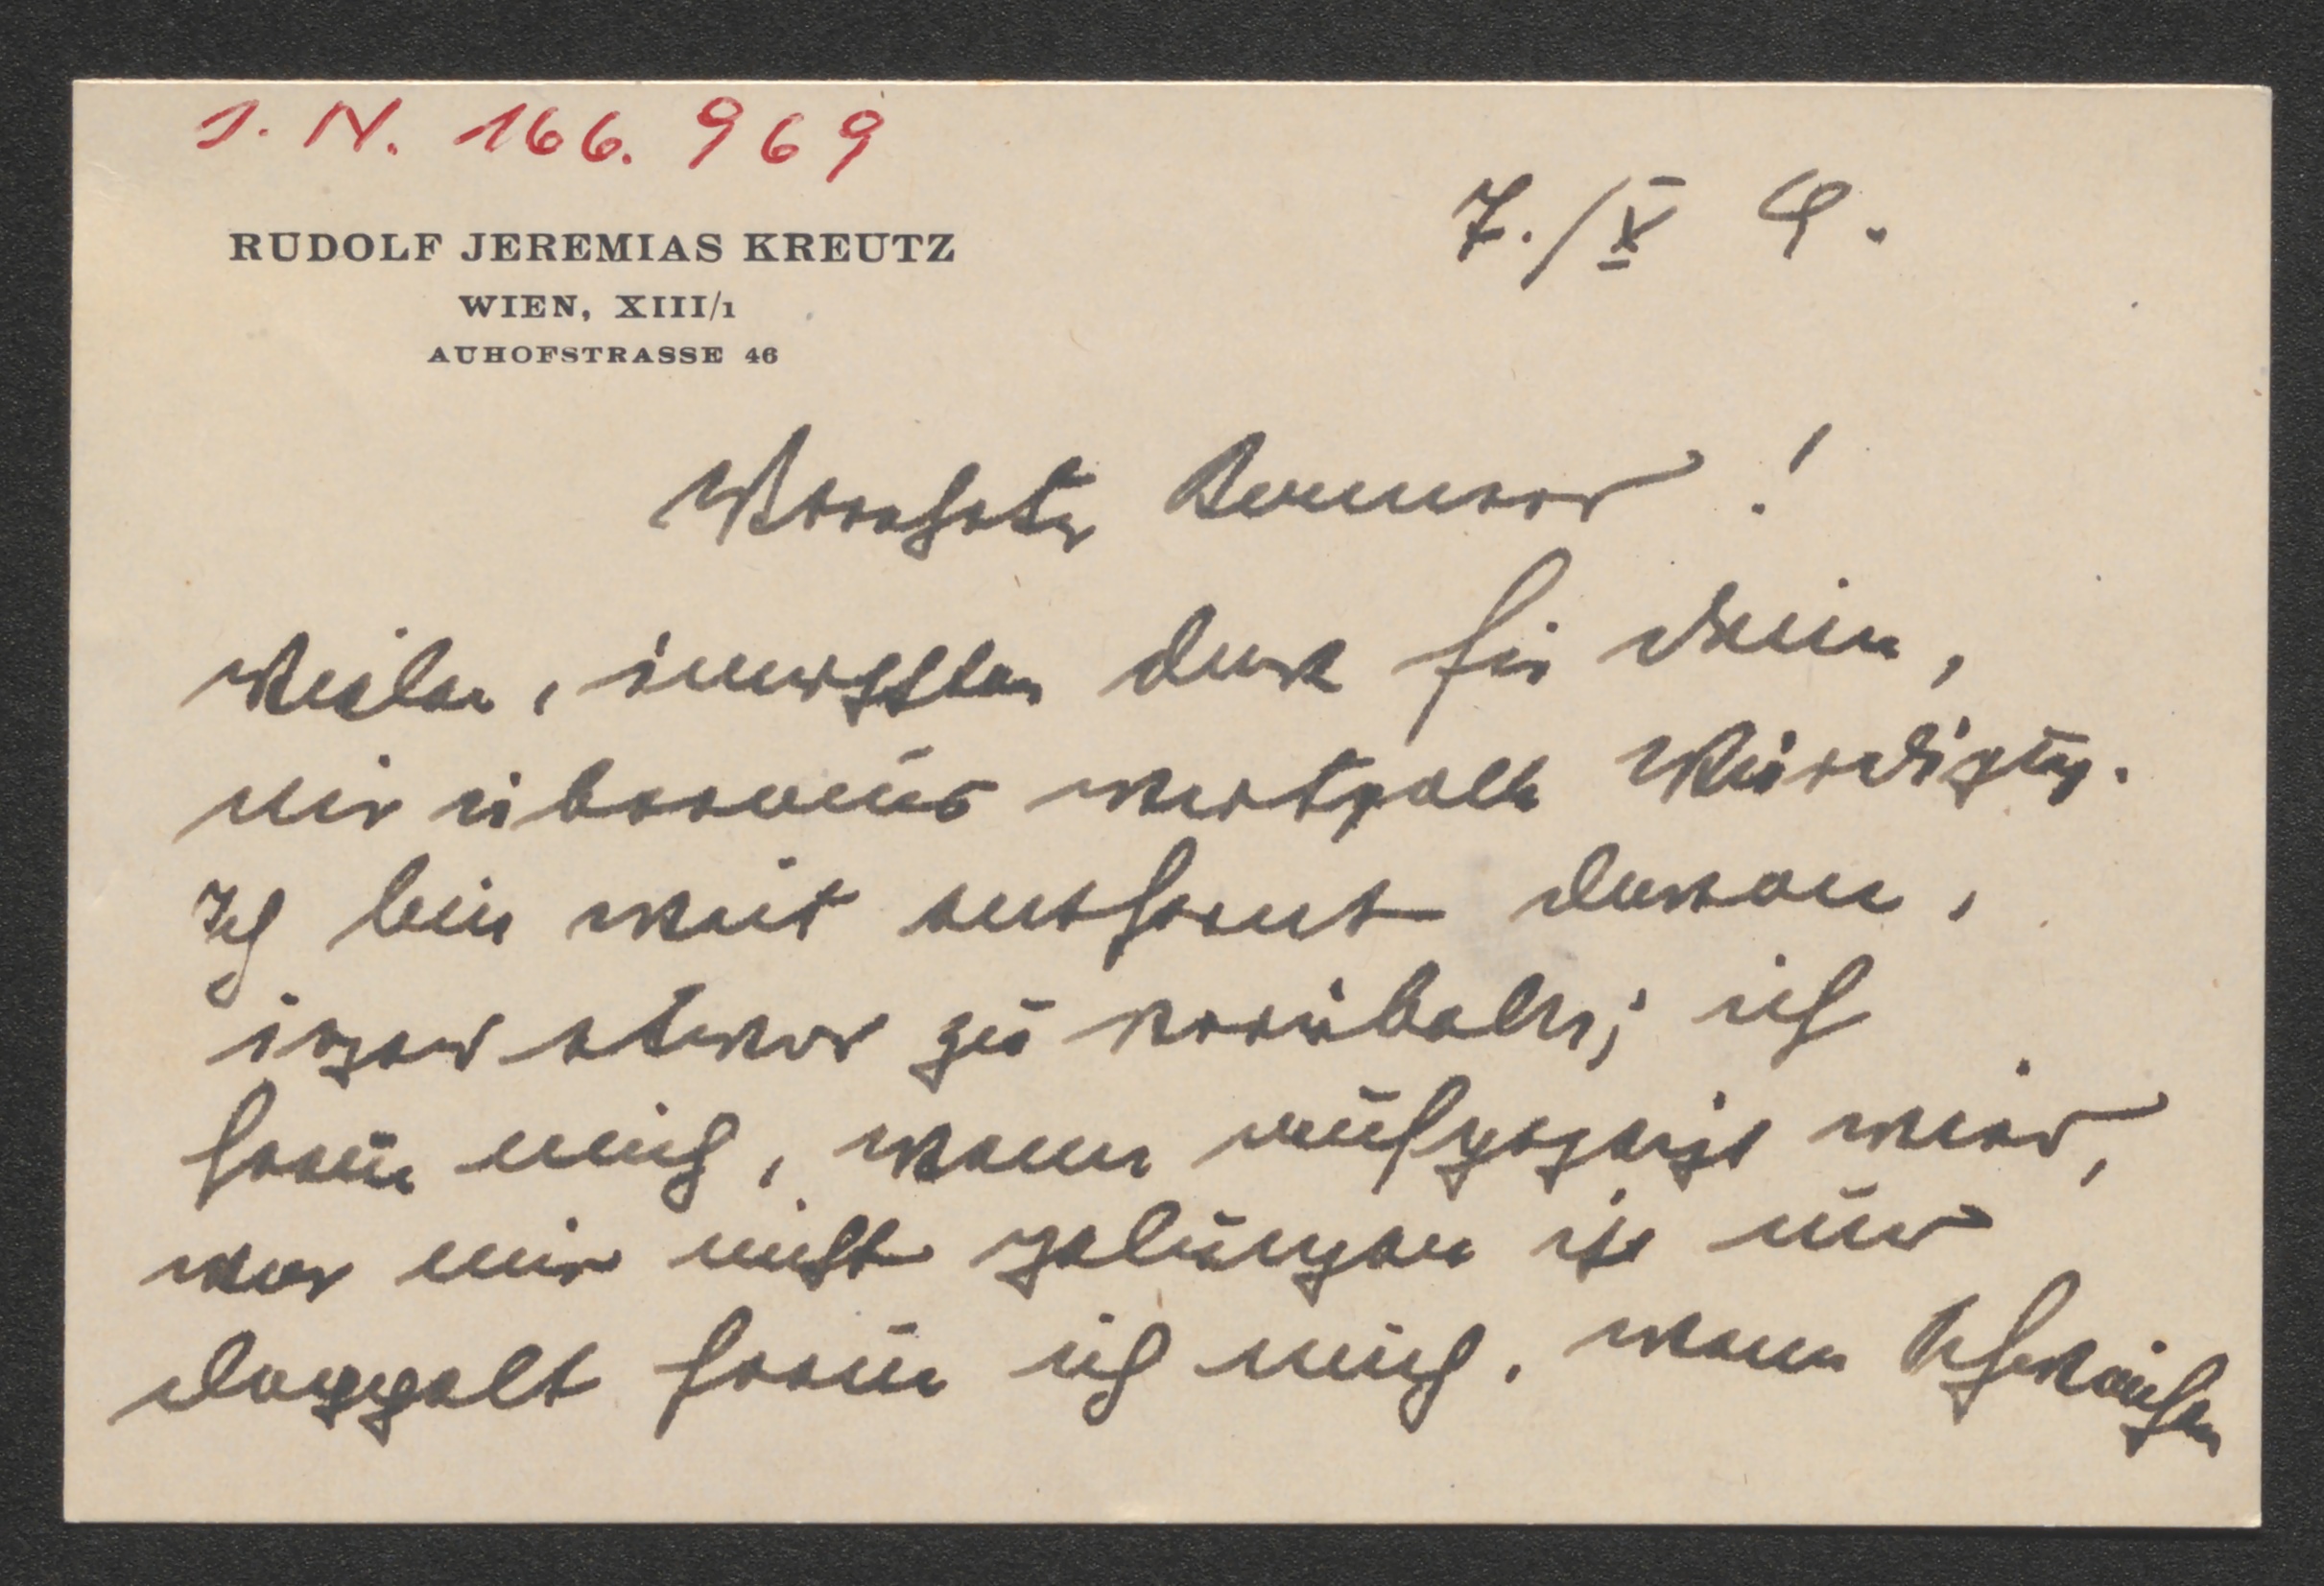 I. N. 166.969
RUDOLF JEREMIAS KREUTZ
WIEN, XIII/1
AUHOFSTRASSE 46
7./X
Verehrter
Vielen, innigsten Dank für Deine,
mir überaus wertvolle Würdigung.
Ich bin weit entfernt davon,
irgend etwas zu verübeln; ich
freue mich, wenn aufgezeigt wird,
was mir nicht gelungen ist und
doppelt freue ich mich, wenn